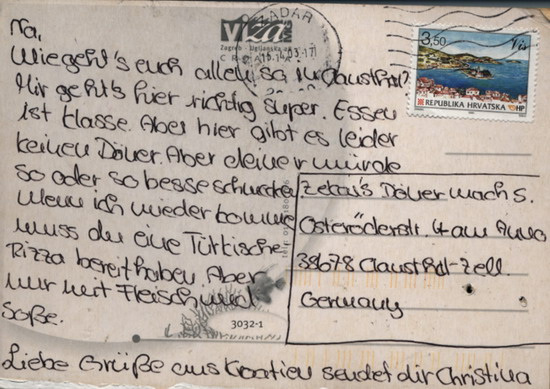 Na,
Wie geht's euch allen so in Clausthal?
Mir geht's hier richtig super. Essen
ist klasse. Aber hier gibt es leider
keinen Döner. Aber deiner würde
so oder so besser schmecken
Wenn ich wieder komme
muss du eine Türkische
Pizza bereit haben. Aber
nur mit Fleisch und
Soße.
Liebe Grüße aus Kroatien sendet dir Christina
Zekai's Döner mach s.
Osteröderstr. 4 am
38678 Clausthal-Zell.
Germany
VIZA
Zagreb
CROATIA
ZADAR
3,50
Vis
REPUBLIKA HRVATSKA
HP
3032-1